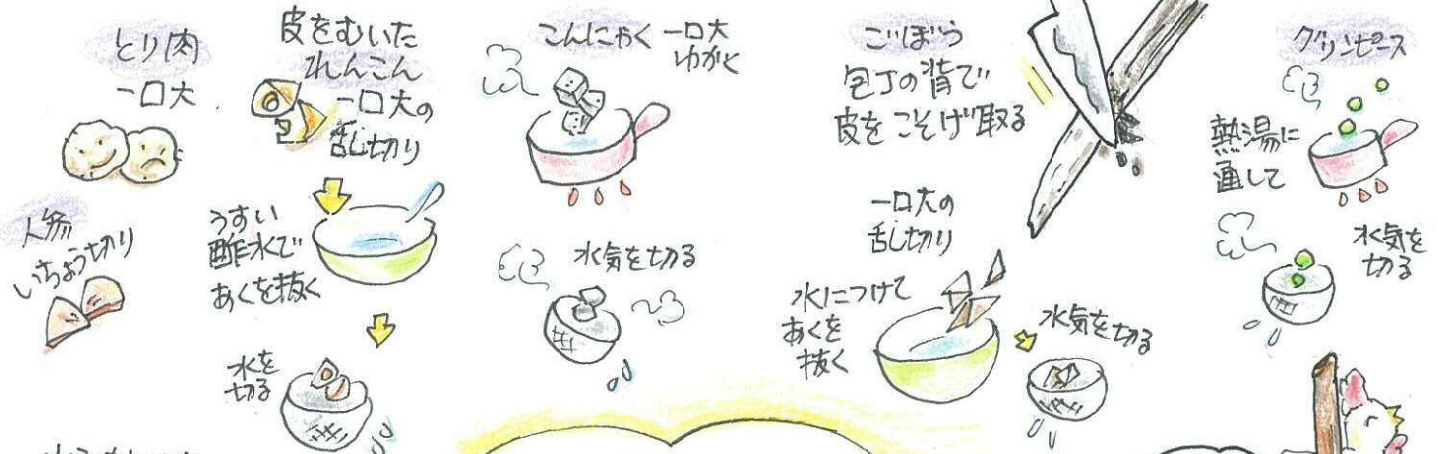 とり肉
一口大
人参
いちょう切り
皮をむいた
れんこん
一口大の
乱切り
うすい
酢水で
あくを抜く
水を
切る
こんにゃく 一口大
ゆがく
水気を切る
ごぼう
包丁の背で
皮をこそげ取る
一口大の
乱切り
水につけて
あくを
抜く
水気を切る
グリンピース
熱湯に
通して
水気を
切る